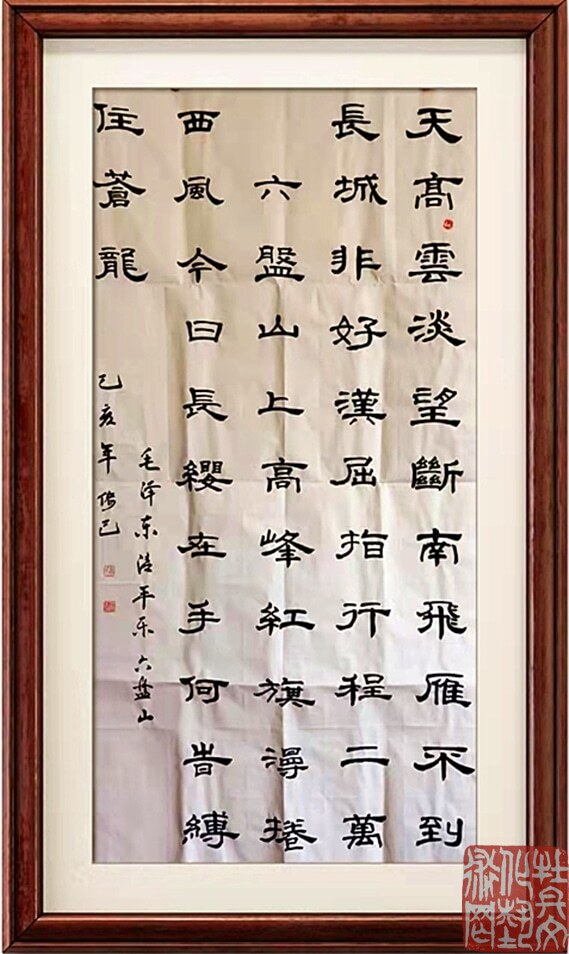 天髙雲淡望斷南飛雁不到
長城非好漢屈指行程二萬
六盤山上高峰紅旗漫捲
西風今日長纓在手何旹縛
住蒼龍
毛泽东清平乐六盘山
己亥年